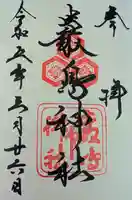 奉拝
嚴島神社
令和五年三月廿六日